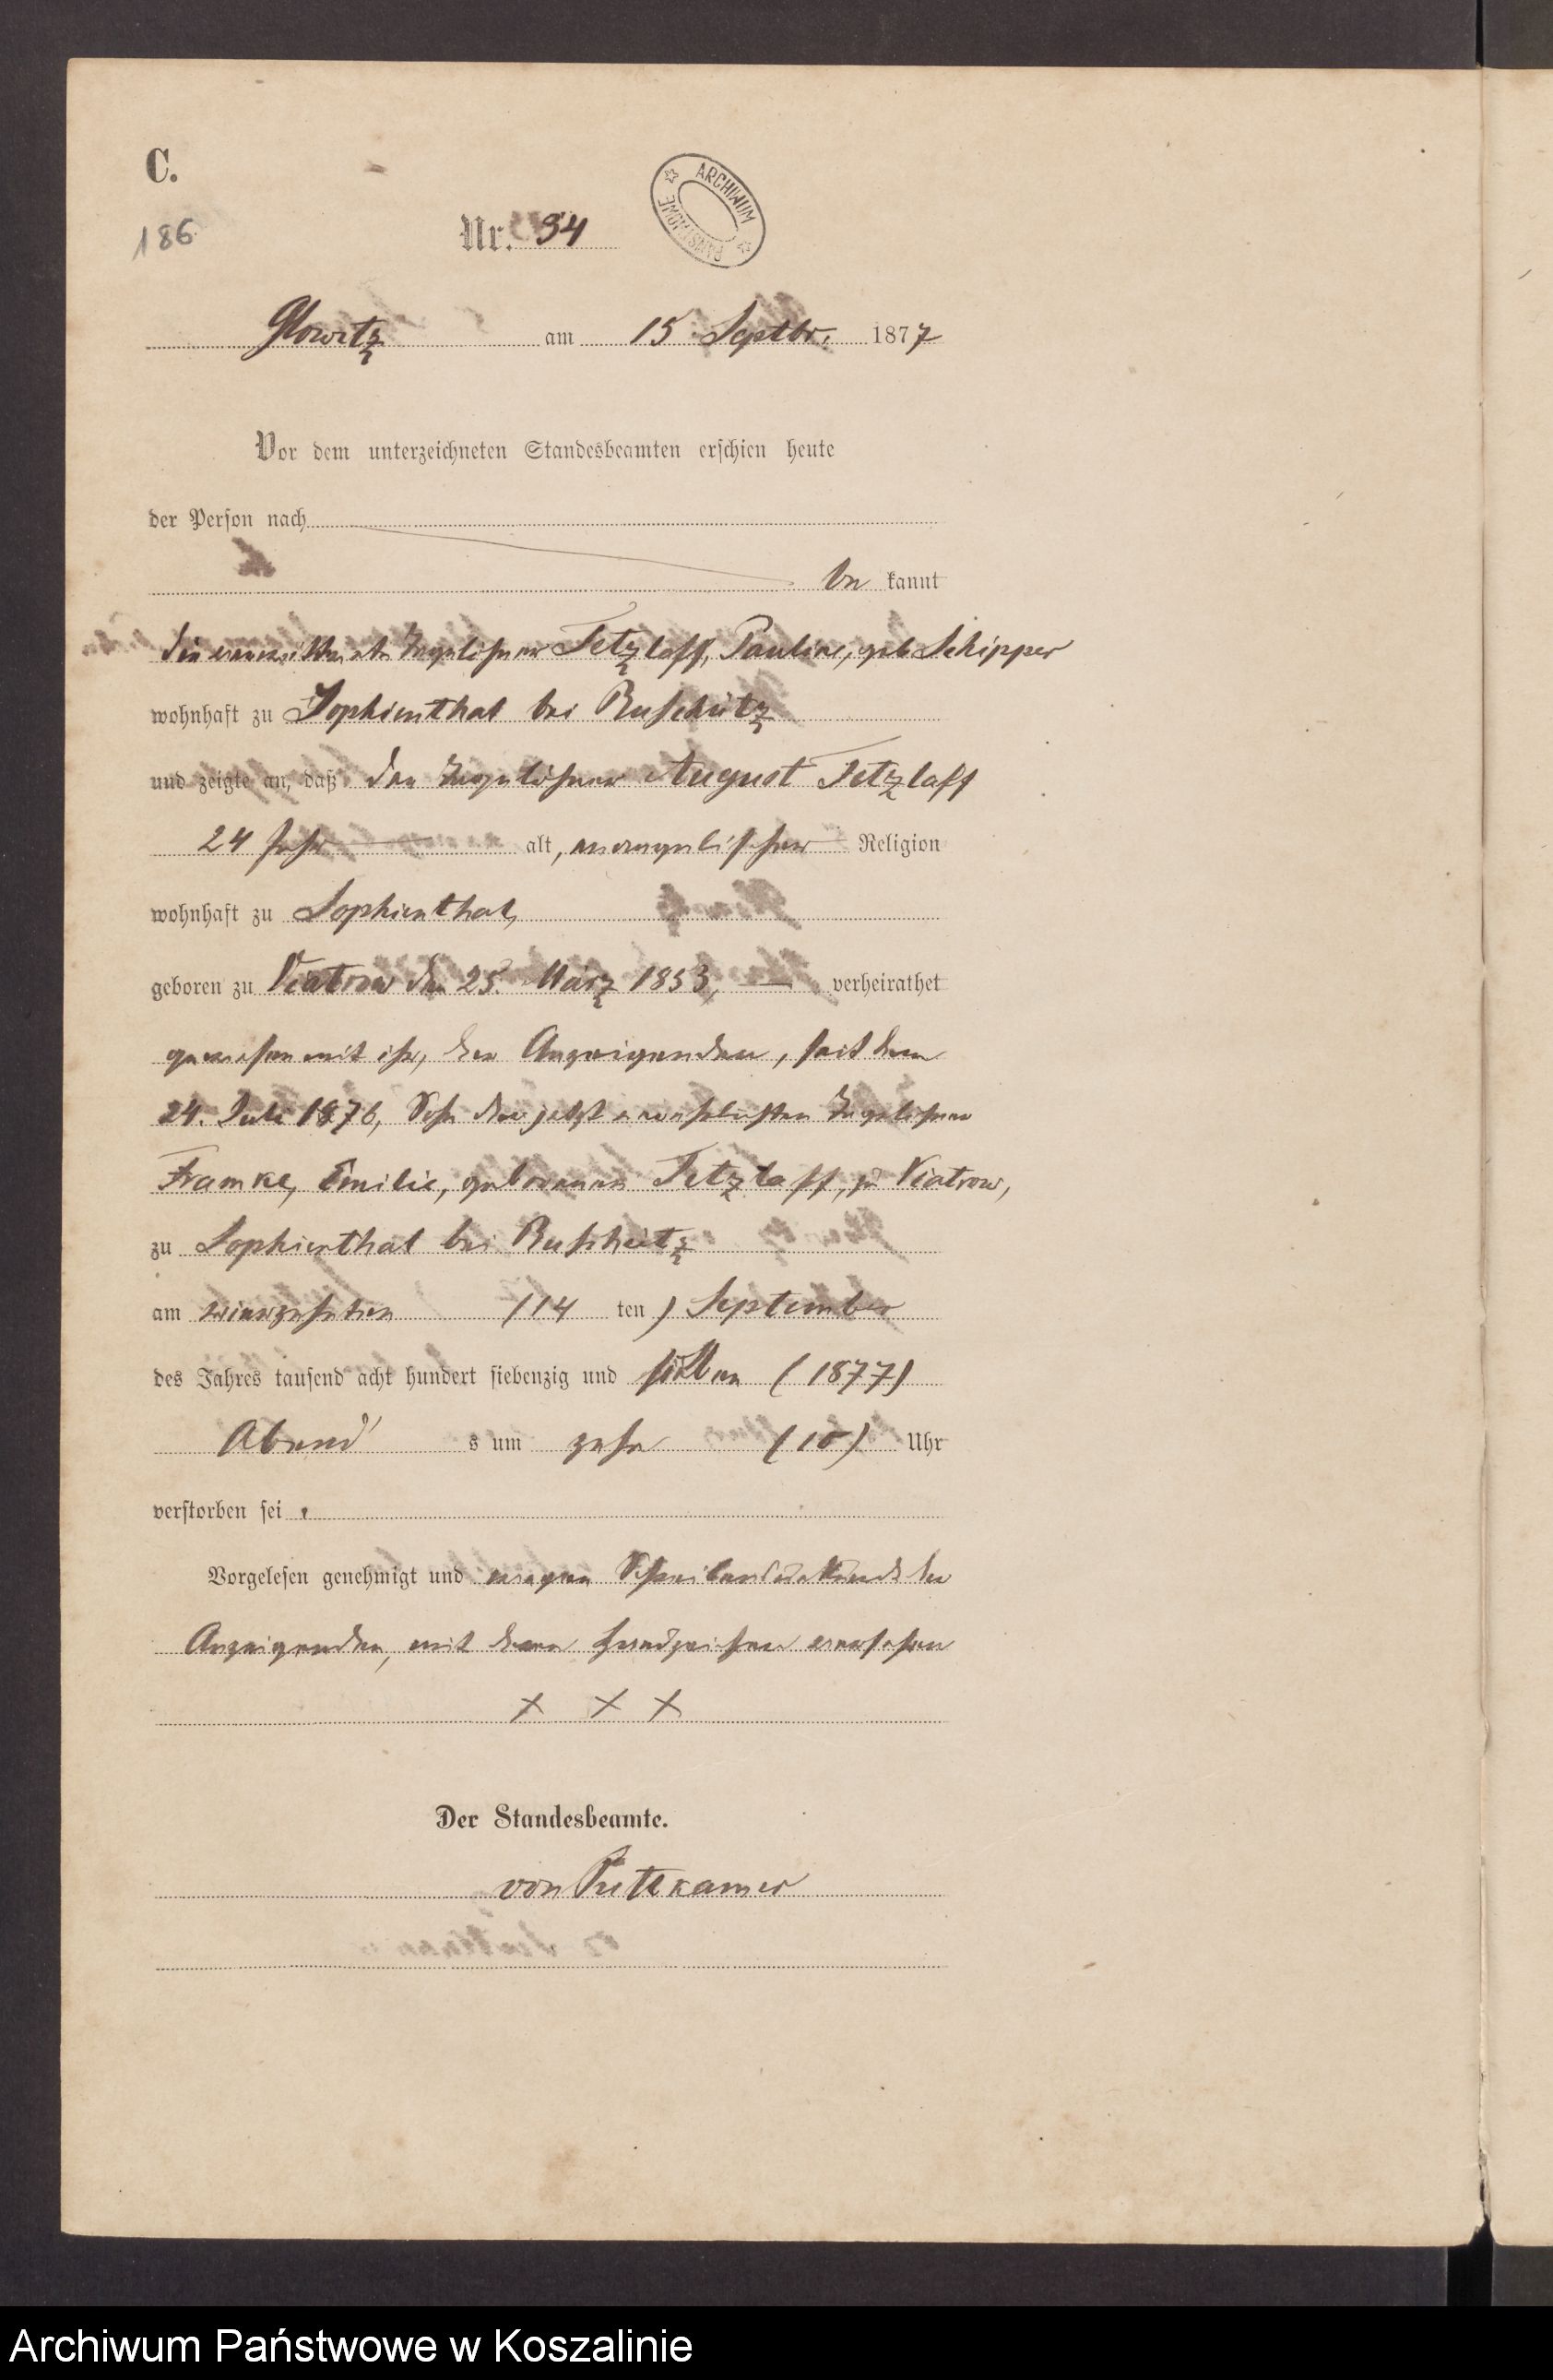 C.
186
Nr. 94
ARCHIWUM PAŃSTWOWE
Glowitz am 15. Septbr. 1877
Vor dem unterzeichneten Standesbeamten erschien heute
der Person nach
be kannt
die verwittwete Tagelöhner Tetzlaff, Pauline, geb. Schipper
wohnhaft zu Sophienthal bei Ruschütz
und zeigte an, daß der Tagelöhner August Tetzlaff
24 Jahr alt, evangelischer Religion
wohnhaft zu Sophienthal,
geboren zu Viatrow den 25. März 1853, verheirathet
gewesen mit ihr, der Anzeigenden, seit dem
24. Juli 1876, Sohn der jetzt verehelichten Tagelöhner
Framke, Emilie, geborenen Tetzlaff, zu Viatrow,
zu Sophienthal bei Ruschütz
am vierzehnten (14 ten) September
des Jahres tausend acht hundert siebenzig und sieben (1877)
Abend s um zehn (10) Uhr
verstorben sei.
Vorgelesen genehmigt und wegen der
Anzeigenden, mit deren Handzeichen versehen
+ + +
Der Standesbeamte.
von Puttkamer
Archiwum Państwowe w Koszalinie